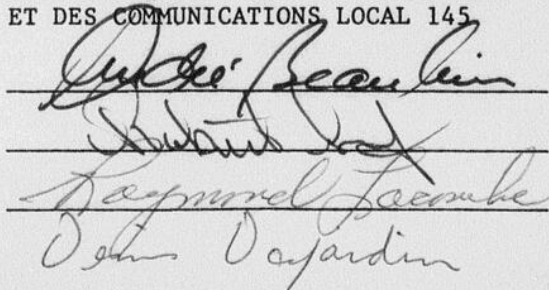 ET DES COMMUNICATIONS LOCAL 145
André Beaulieu
Raymond Lacombe
Denis Dejardin